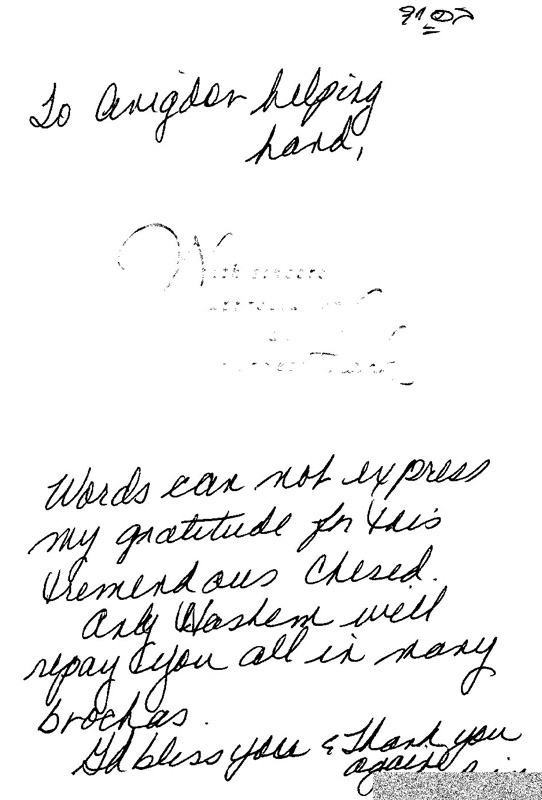 To Avigdor helping
hand,
With sincere
Words can not express
my gratitude for this
tremendous Chesed.
Only Hashem will
repay you all in many
brochas.
Gd bless you & Thank you
again